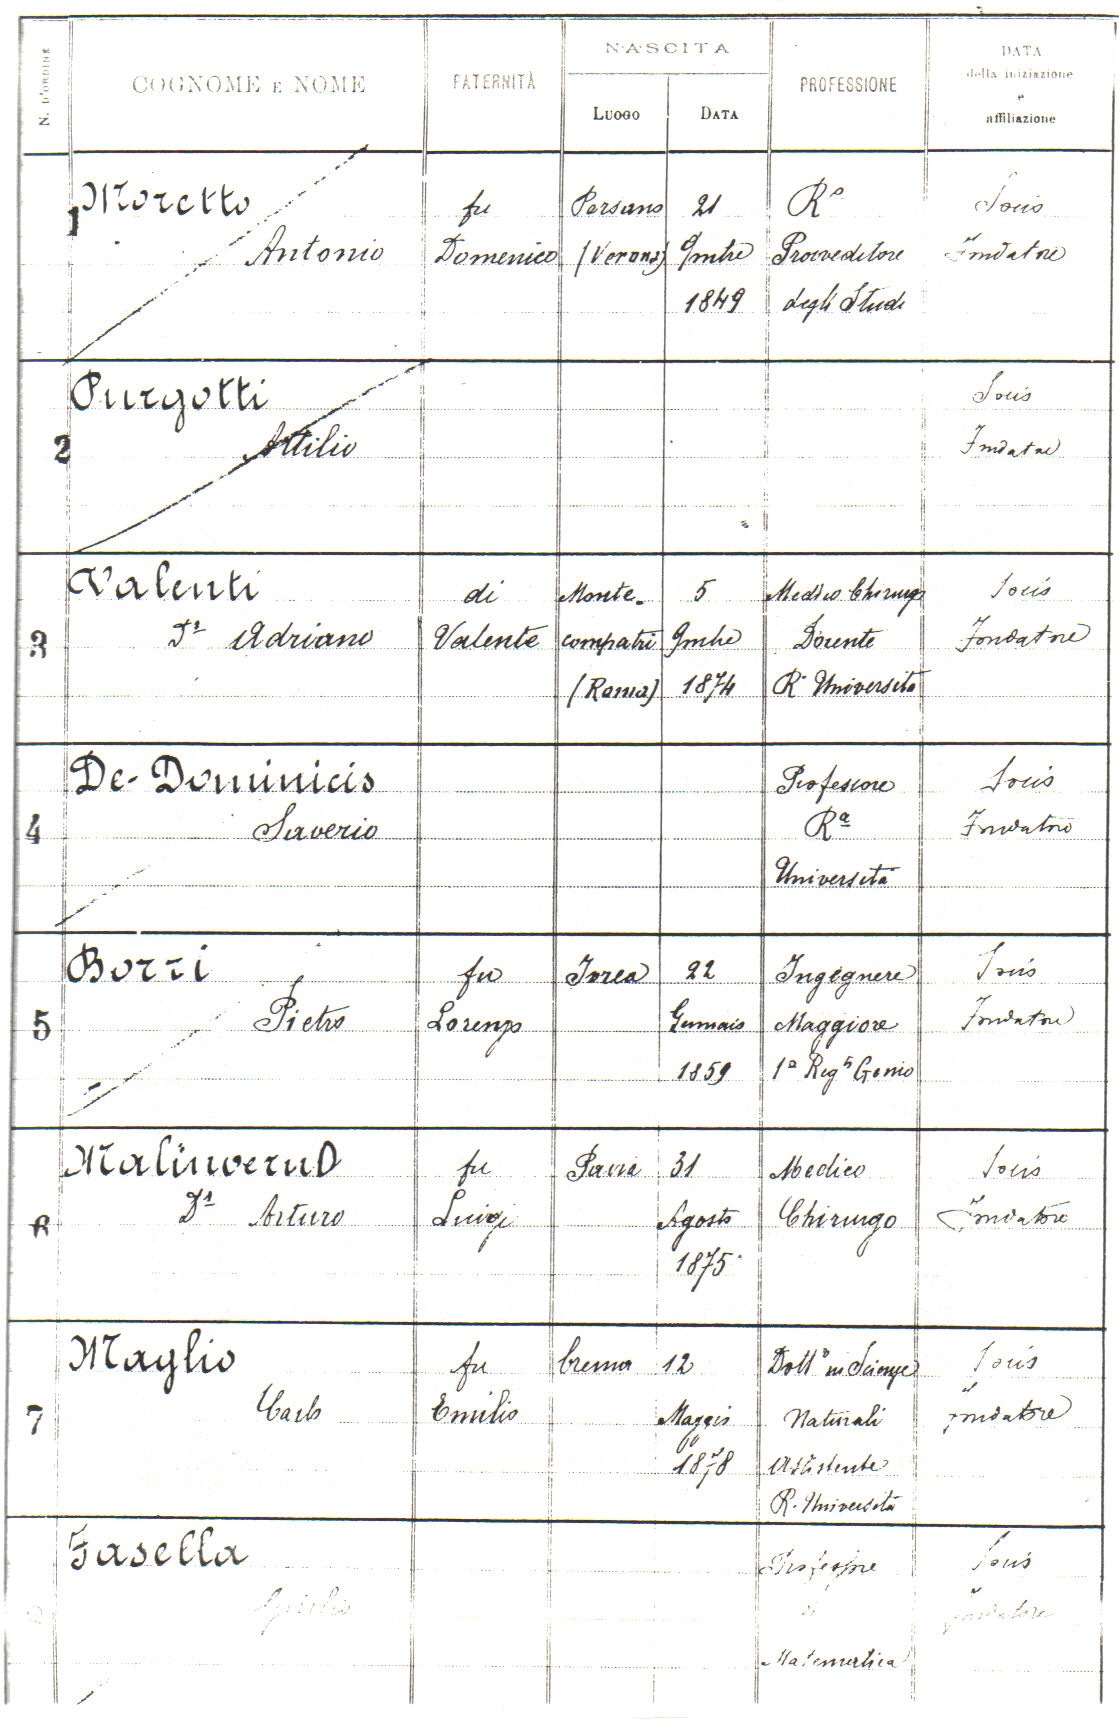 N. D'ORDINE
COGNOME E NOME
PATERNITÀ
NASCITA
LUOGO
DATA
PROFESSIONE
DATA
della iniziazione
e
affiliazione
1
Moretto
Antonio
fu
Domenico
(Verona)
21
9mbre
1849
R°
Provveditore
degli Studi
Socio
Fondatore
2
Purgotti
Attilio
Socio
Fondatore
3
Valenti
Dr Adriano
di
Valente
Monte-
compatri
(Roma)
5
9mbre
1874
Medico Chirurgo
Docente
R. Università
Socio
Fondatore
4
De-Dominicis
Saverio
Professore
Ra
Università
Socio
Fondatore
5
Borri
Pietro
fu
Lorenzo
Ivrea
22
Gennaio
1859
Ingegnere
Maggiore
1° Regto Genio
Socio
Fondatore
6
Malinverno
Dr Arturo
fu
Luigi
Pavia
31
Agosto
1875
Medico
Chirurgo
Socio
Fondatore
7
Maglio
Carlo
fu
Emilio
Crema
12
Maggio
1878
Dott° in Scienze
Naturali
Assistente
R. Università
Socio
Fondatore
Fasella
Giulio
Professore
di
Matematica
Socio
Fondatore